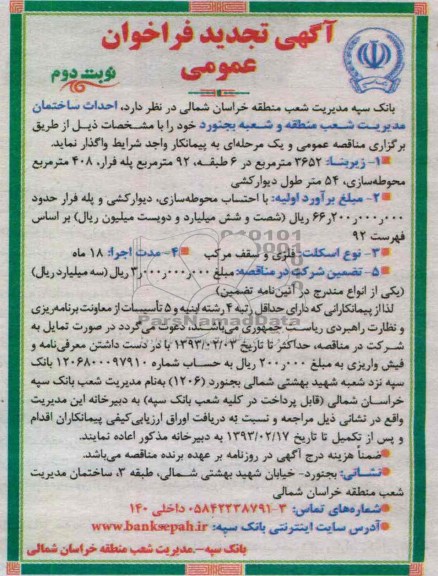 آگهی تجدید فراخوان
عمومی
نوبت دوم
بانک سپه مدیریت شعب منطقه خراسان شمالی در نظر دارد، احداث ساختمان
مدیریت شعب منطقه و شعبه بجنورد خود را با مشخصات ذیل از طریق
برگزاری مناقصه عمومی و یک مرحله‌ای به پیمانکار واجد شرایط واگذار نماید.
۱- زیربنا: ۳۶۵۲ مترمربع در ۶ طبقه، ۹۲ مترمربع پله فرار، ۴۰۸ مترمربع
محوطه‌سازی، ۵۴ متر طول دیوارکشی
۲- مبلغ برآورد اولیه: با احتساب محوطه‌سازی، دیوارکشی و پله فرار حدود
۶۶٫۲۰۰٫۰۰۰٫۰۰۰ ریال (شصت و شش میلیارد و دویست میلیون ریال) بر اساس
فهرست ۹۲
۳- نوع اسکلت: فلزی و سقف مرکب ۴- مدت اجرا: ۱۸ ماه
۵- تضمین شرکت در مناقصه: مبلغ ۳٫۰۰۰٫۰۰۰٫۰۰۰ ریال (سه میلیارد ریال)
(یکی از انواع مندرج در آئین‌نامه تضمین)
لذا از پیمانکارانی که دارای حداقل رتبه ۴ رشته ابنیه و ۵ تأسیسات از معاونت برنامه‌ریزی
و نظارت راهبردی ریاست جمهوری می‌باشند، دعوت می‌گردد در صورت تمایل به
شرکت در مناقصه، حداکثر تا تاریخ ۱۳۹۳/۰۲/۰۳ با در دست داشتن معرفی‌نامه و
فیش واریزی به مبلغ ۲۰۰٫۰۰۰ ریال به حساب شماره ۱۲۰۶۸۰۰۰۹۷۹۱۰ بانک
سپه نزد شعبه شهید بهشتی شمالی بجنورد (۱۲۰۶) به‌نام مدیریت شعب بانک سپه
خراسان شمالی (قابل پرداخت در کلیه شعب بانک سپه) به دبیرخانه این مدیریت
واقع در نشانی ذیل مراجعه و نسبت به دریافت اوراق ارزیابی‌کیفی پیمانکاران اقدام
و پس از تکمیل تا تاریخ ۱۳۹۳/۰۲/۱۷ به دبیرخانه مذکور اعاده نمایند.
ضمناً هزینه درج آگهی در روزنامه بر عهده برنده مناقصه می‌باشد.
نشانی: بجنورد- خیابان شهید بهشتی شمالی، طبقه ۳، ساختمان مدیریت
شعب منطقه خراسان شمالی
شماره‌های تماس: ۳-۰۵۸۴۲۲۳۸۷۹۱ داخلی ۱۴۰
آدرس سایت اینترنتی بانک سپه: www.banksepah.ir
بانک سپه - مدیریت شعب منطقه خراسان شمالی
ParsNamadData